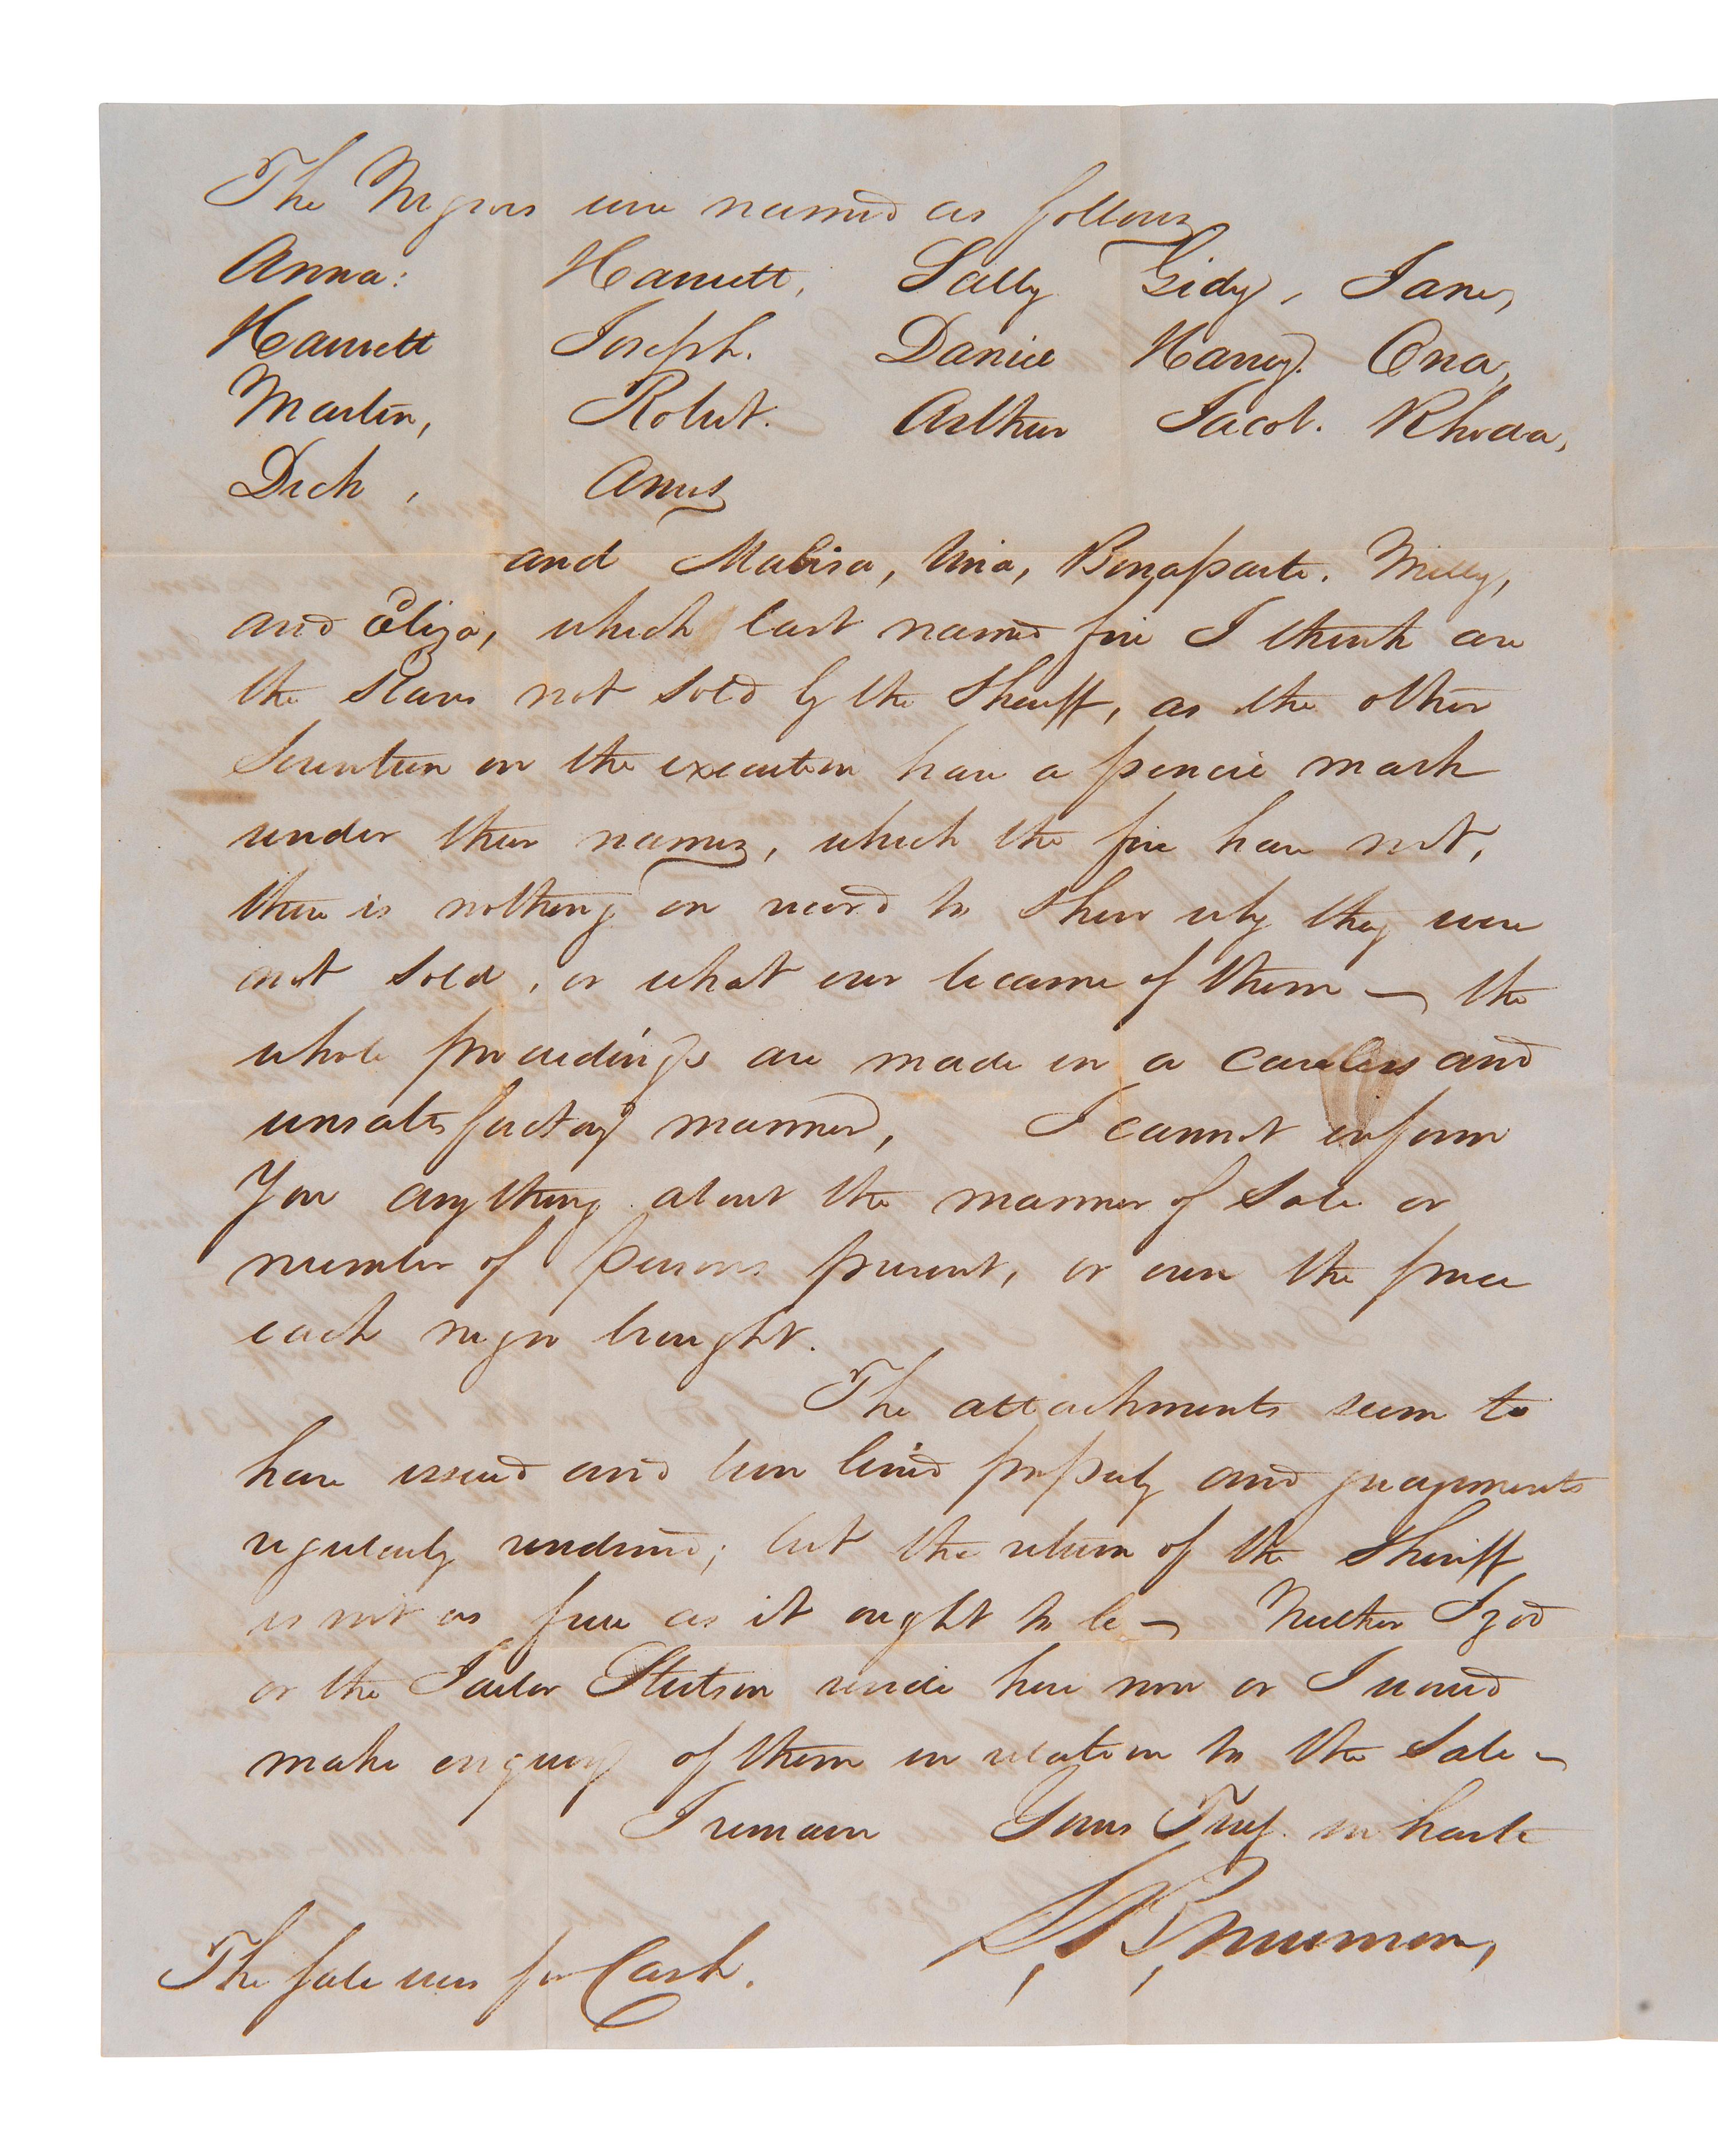 The Negroes were named as follows
Anna: Harriett, Sally Gidy, Jane,
Harriett Joseph. Daniel Harry. Ona,
Martin, Robert. Arthur Jacob. Rhoda,
Dick, Amos
and Malisa, Vina, Bonaparte. Milly,
and Eliza, which last named five I think are
the slaves not sold by the Sheriff, as the other
Seventeen on the execution have a pencil mark
under their names, which the five have not,
there is nothing on record to shew why they were
not sold, or what ever became of them — the
whole proceedings are made in a careless and
unsatisfactory manner, I cannot inform
You anything about the manner of Sale or
number of persons present, or even the price
each negro brought.
The attachments seem to
have issued and been levied properly and judgments
regularly rendered; but the return of the Sheriff
is not as full as it ought to be — Neither Izod
or the Jailor Stutson reside here now or I would
make enquiry of them in relation to the Sale —
I remain Yours Truly in haste
The sale was for Cash.